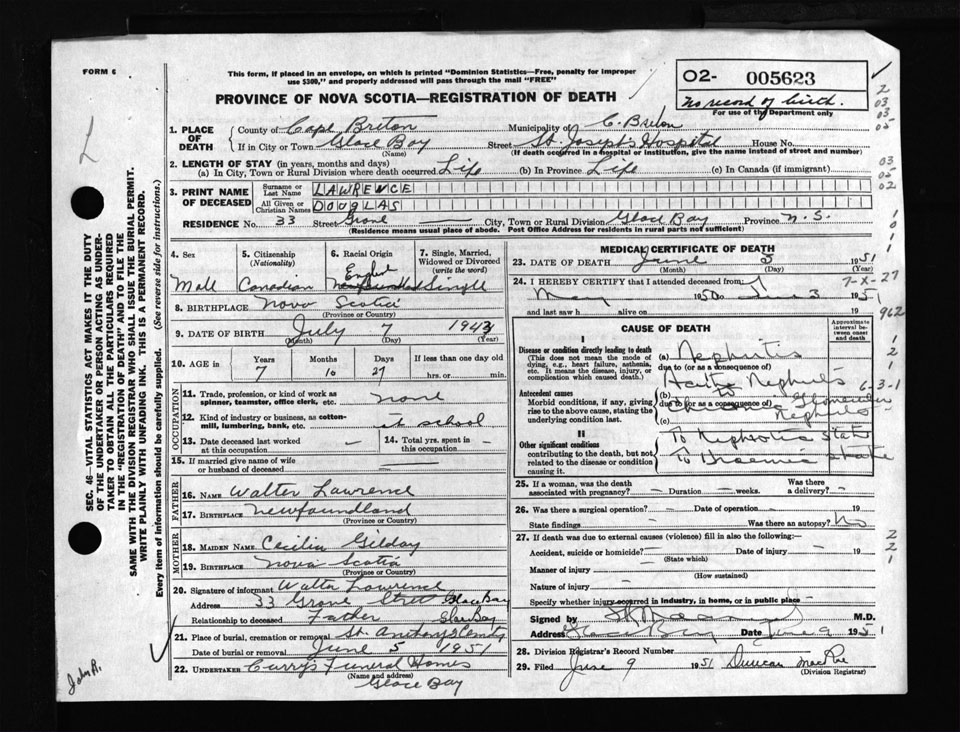 FORM 6
This form, if placed in an envelope, on which is printed "Dominion Statistics—Free, penalty for improper
use $300," and properly addressed will pass through the mail "FREE"
PROVINCE OF NOVA SCOTIA—REGISTRATION OF DEATH
O2- 005623
No record of birth.
For use of the Department only
1. PLACE OF DEATH
County of Cape Breton Municipality of C. Breton
If in City or Town Glace Bay Street St. Joseph's Hospital House No.
(Name) (If death occurred in a hospital or institution, give the name instead of street and number)
2. LENGTH OF STAY (in years, months and days)
(a) In City, Town or Rural Division where death occurred Life (b) In Province Life (c) In Canada (if immigrant)
3. PRINT NAME OF DECEASED
Surname or Last Name LAWRENCE
All Given or Christian Names DOUGLAS
RESIDENCE No. 33 Street Grove City, Town or Rural Division Glace Bay Province N.S.
(Residence means usual place of abode. Post Office Address for residents in rural parts not sufficient)
4. Sex 5. Citizenship (Nationality) 6. Racial Origin 7. Single, Married, Widowed or Divorced (write the word)
Male Canadian English Single
8. BIRTHPLACE Nova Scotia
(Province or Country)
9. DATE OF BIRTH July 7 1943
(Month) (Day) (Year)
10. AGE in Years Months Days If less than one day old
7 10 27 hrs. or min.
OCCUPATION
11. Trade, profession, or kind of work as spinner, teamster, office clerk, etc. none
12. Kind of industry or business, as cotton-mill, lumbering, bank, etc. at school
13. Date deceased last worked at this occupation — 14. Total yrs. spent in this occupation —
15. If married give name of wife or husband of deceased
FATHER
16. NAME Walter Lawrence
17. BIRTHPLACE Newfoundland
(Province or Country)
MOTHER
18. MAIDEN NAME Cecilia Gilday
19. BIRTHPLACE Nova Scotia
(Province or Country)
20. Signature of informant Walter Lawrence
Address 33 Grove Street Glace Bay
Relationship to deceased Father Glace Bay
21. Place of burial, cremation or removal St. Anthony's Cemty
Date of burial or removal June 5 1951
22. UNDERTAKER Curry's Funeral Homes
(Name and address)
Glace Bay
MEDICAL CERTIFICATE OF DEATH
23. DATE OF DEATH June 3 1951
(Month) (Day) (Year)
24. I HEREBY CERTIFY that I attended deceased from
May 1950 to June 3 1951
and last saw h alive on 19
CAUSE OF DEATH
Approximate interval between onset and death
I
Disease or condition directly leading to death
(This does not mean the mode of dying, e.g., heart failure, asthenia, etc. It means the disease, injury, or complication which caused death.)
(a) Nephritis
due to (or as a consequence of)
Nephritis
Antecedent causes
Morbid conditions, if any, giving rise to the above cause, stating the underlying condition last.
(b)
due to (or as a consequence of)
(c) Nephritis
II
Other significant conditions
contributing to the death, but not related to the disease or condition causing it.
To Nephrotic State
To Uraemic State
25. If a woman, was the death associated with pregnancy? — Duration — weeks. Was there a delivery? —
26. Was there a surgical operation? — Date of operation — 19
State findings — Was there an autopsy? No
27. If death was due to external causes (violence) fill in also the following:
Accident, suicide or homicide? — Date of injury — 19
(State which)
Manner of injury —
(How sustained)
Nature of injury —
Specify whether injury occurred in industry, in home, or in public place —
Signed by M.D.
Address Glace Bay Date June 9 1951
28. Division Registrar's Record Number
29. Filed June 9 1951 Duncan MacRae
(Division Registrar)
SEC. 46—VITAL STATISTICS ACT MAKES IT THE DUTY
OF THE UNDERTAKER OR PERSON ACTING AS UNDER-
TAKER TO OBTAIN ALL THE PARTICULARS REQUIRED
IN THE "REGISTRATION OF DEATH" AND TO FILE THE
SAME WITH THE DIVISION REGISTRAR WHO SHALL ISSUE THE BURIAL PERMIT.
WRITE PLAINLY WITH UNFADING INK. THIS IS A PERMANENT RECORD.
Every item of information should be carefully supplied. (See reverse side for instructions.)
L
John R.
2
03
03
02
03
02
02
1
0
1
7-X-27
962
1
2
1
6-3-1
2
2
1